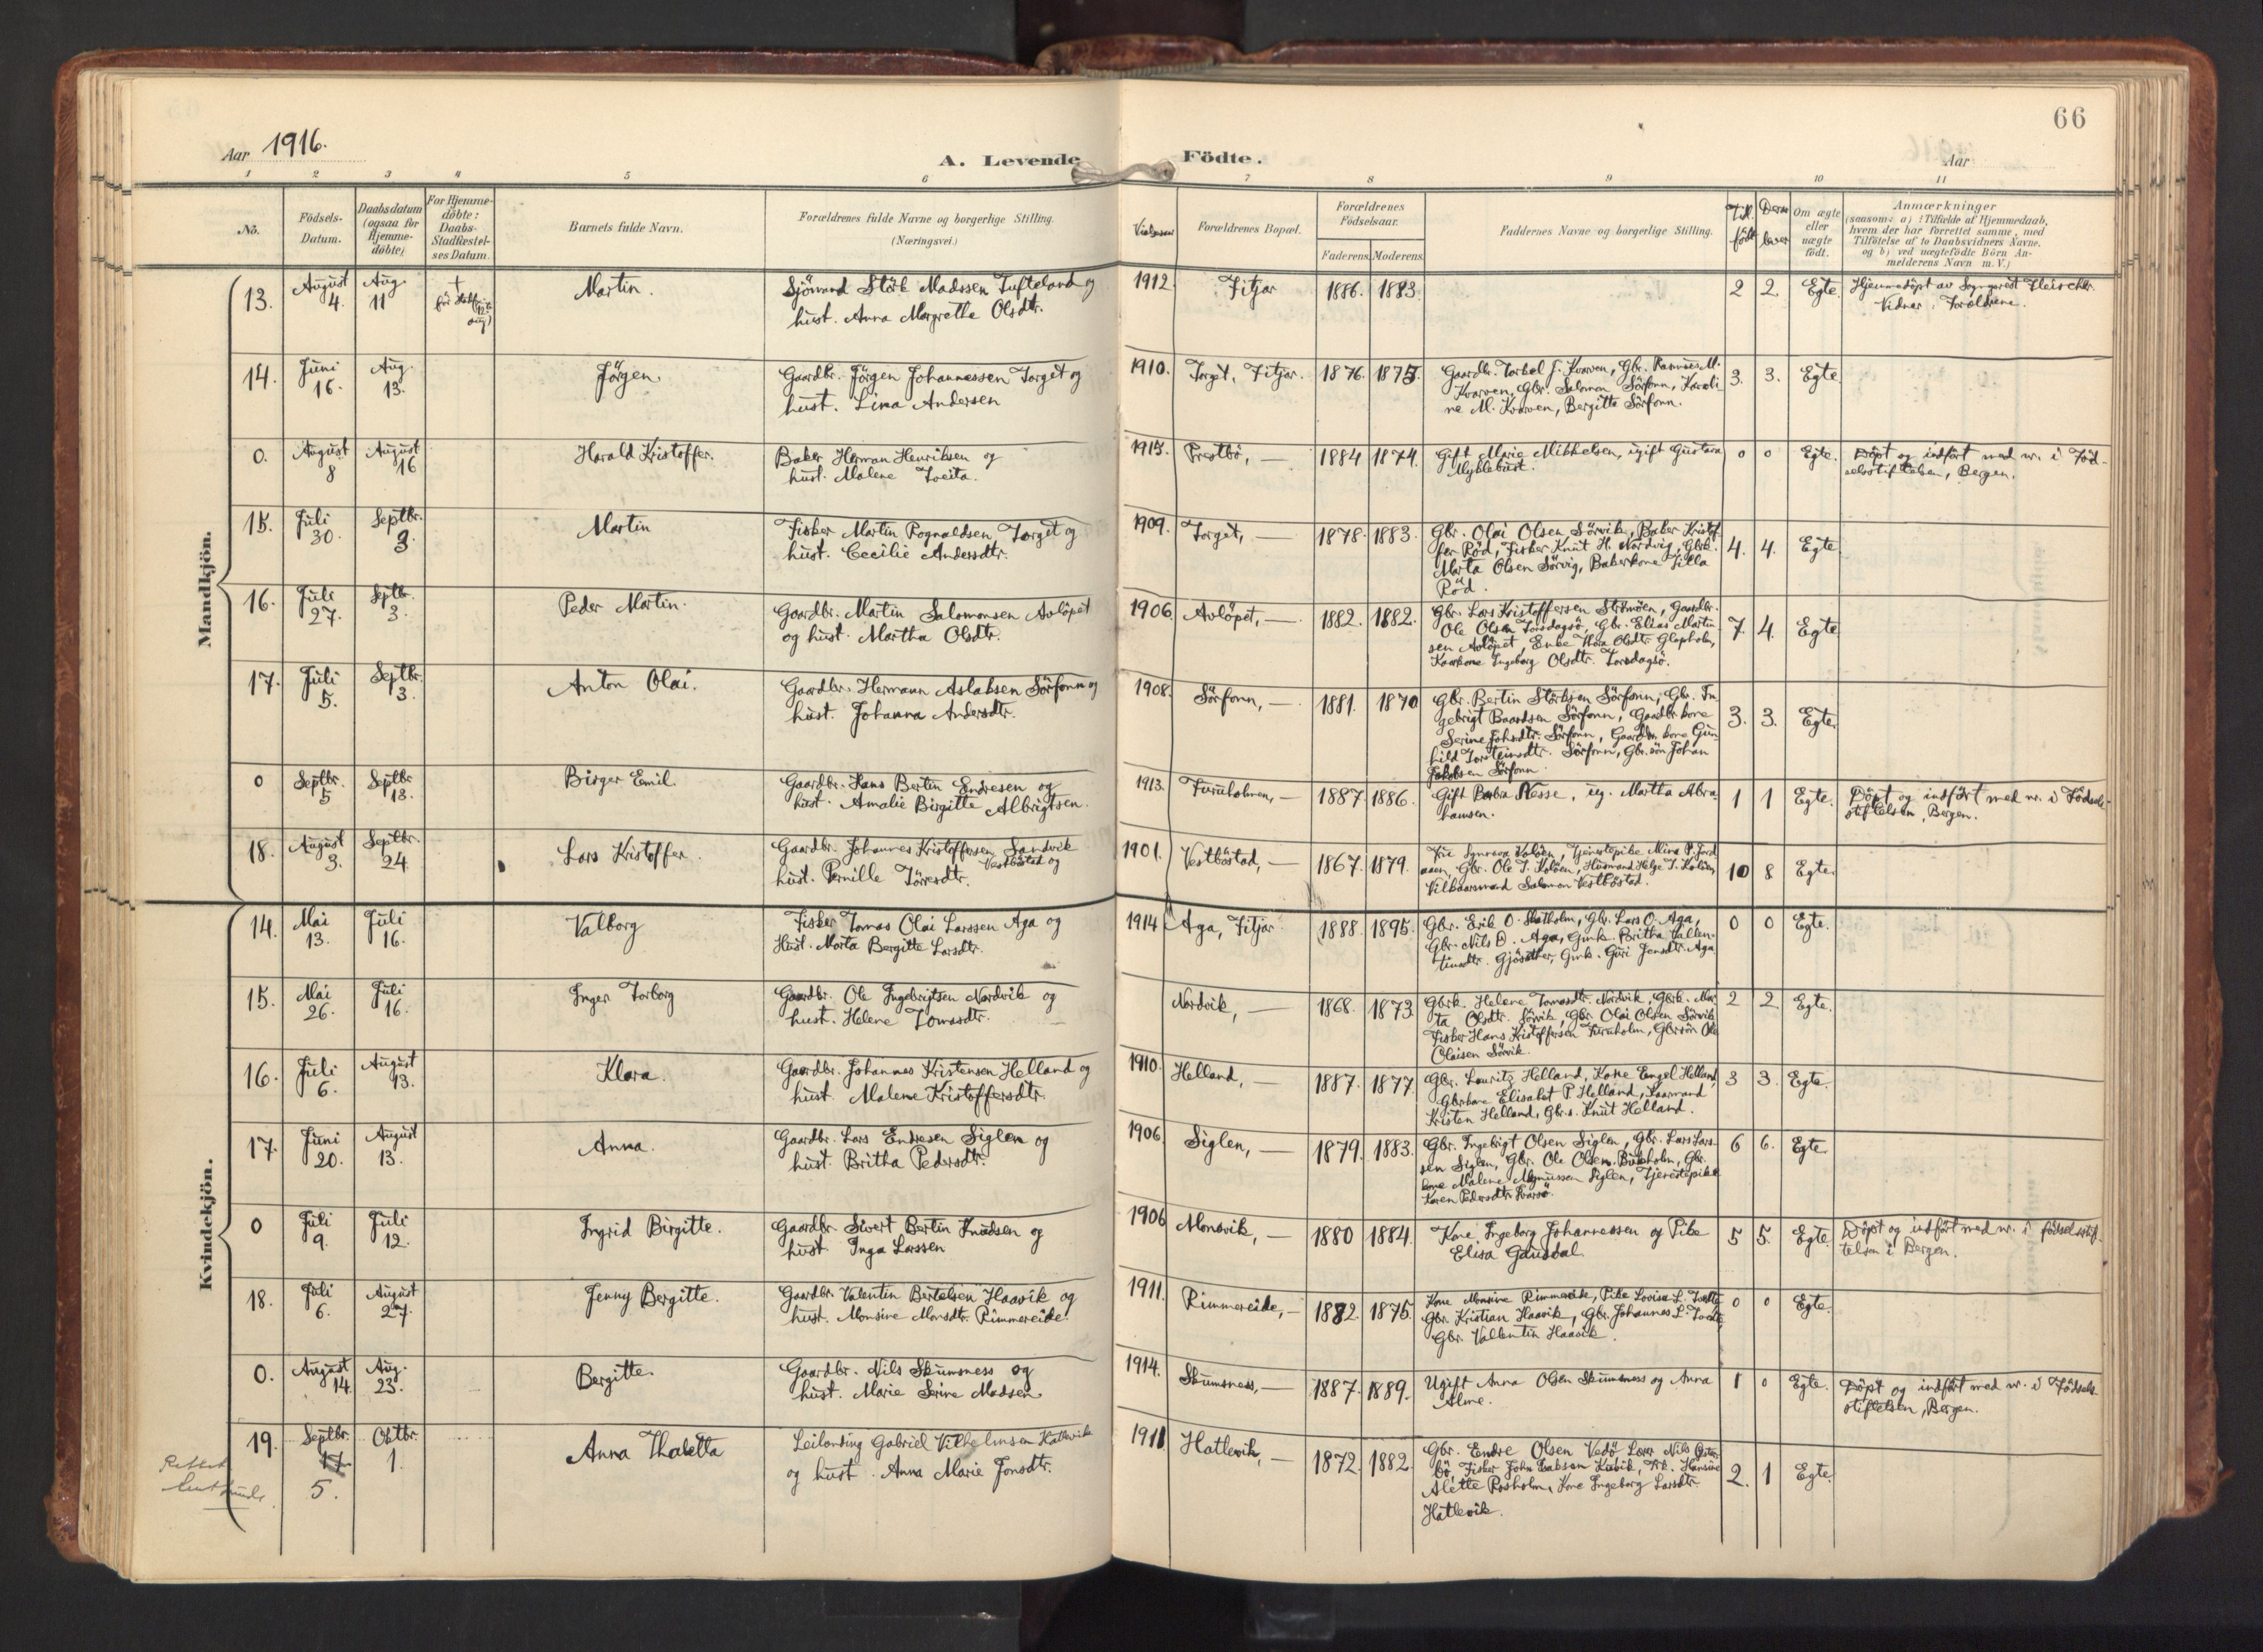 66
Aar 1916.
A. Levende Födte.
Aar
1 2 3 4 5 6 7 8 9 10 11
No.
Födsels-Datum.
Daabsdatum (ogsaa for Hjemme-döbte)
For Hjemme-döbte: Daabs-Stadfæstel-ses Datum.
Barnets fulde Navn.
Forældrenes fulde Navne og borgerlige Stilling.
(Næringsvei.)
Vielsesaar
Forældrenes Bopæl.
Forældrenes Födselsaar.
Faderens Moderens
Faddernes Navne og borgerlige Stilling.
Till. födt
Derav lever
Om ægte eller uægte födt.
Anmærkninger
(saasom: a) i Tilfælde af Hjemmedaab, hvem der har forrettet samme, med Tilföielse af to Daabsvidners Navne, og b) ved uægtefödte Börn An-melderens Navn m. V.)
Mandkjön.
13. August 4. Aug. 11 + för Stadf. aug) Martin.
Sjömand Störk Madssen Tufteland og
hust. Anna Margrethe Olsdtr.
1912. Fitjar 1886. 1883. 2 2. Egte.
Hjemmedöpt av Sogneprest Fleischer.
Vidner: Forældrene.
14. Juni 16. Aug. 13. Jörgen.
Gaardbr. Jörgen Johannessen Torget og
hust. Lina Andersen
1910. Torget, Fitjar. 1876. 1875.
Gaardbr. Torkel J. Kvarven, Gbr. Rasmus M.
Kvarven, Gbr. Salomon Sörfonn, Karoli-
ne M. Kvarven, Bergitte Sörfonn.
3. 3. Egte
0. August 8 August 16 Harald Kristoffer.
Baker Herman Henriksen og
hust. Malene Tveita.
1915. Prestbö, — 1884 1874.
Gift Marie Mikkelsen, ugift Gustava
Myklebust.
0 0 Egte.
Döpt og indfört med nr. i Föd-
selsstiftelsen, Bergen.
15. Juli 30. Septbr. 3. Martin
Fisker Martin Rognaldsen Torget og
hust. Cecilie Andersdtr.
1909. Torget, — 1878. 1883.
Gbr. Olai Olsen Sörvik, Baker Kristof-
fer Röd, Fisker Knut H. Nordvig, Gbrk.
Marta Olsen Sörvig, Bakerkone Silla
Röd.
4. 4. Egte
16. Juli 27. Septbr. 3. Peder Martin.
Gaardbr. Martin Salomonsen Avlöpet
og hust. Martha Olsdtr.
1906. Avlöpet, — 1882. 1882.
Gbr. Lars Kristoffersen Strömöen, Gaardbr.
Ole Olsen Torsdagsö, Gbr. Elias Martin-
sen Avlöpet, Enke Thora Olsdtr. Glopholm,
Kaarkone Ingeborg Olsdtr. Torsdagsö.
7. 4. Egte
17. Juli 5. Septbr. 3. Anton Olai.
Gaardbr. Hermann Aslaksen Sörfonn og
hust. Johanna Andersdtr.
1908. Sörfonn, — 1881. 1870
Gbr. Bertin Störksen Sörfonn, Gbr. In-
gebrigt Baardsen Sörfonn, Gaardbr.kone
Serine Johsdtr. Sörfonn, Gaardbr. kone Gun-
hild Torsteinsdtr. Sörfonn, Gbr. sön Johan
Jakobsen Sörfonn.
3. 3. Egte
0 Septbr. 5 Septbr. 13. Birger Emil.
Gaardbr. Hans Bertin Endresen og
hust. Amalie Birgitte Albrigtsen.
1913. Furuholmen, — 1887. 1886.
Gift Barbra Nesse, ug. Martha Abra-
hamsen.
1 1 Egte.
Döpt og indfört med nr. i Födsels-
stiftelsen, Bergen.
18. August 3. Septbr. 24. Lars Kristoffer.
Gaardbr. Johannes Kristoffersen Sandvik
Vestböstad og
hust. Pernille Törresdtr.
1901. Vestböstad, — 1867. 1879.
Synneva Kalöen, Tjenestepike Mina P. Jord
aasen, Gbr. Ole T. Kalöen, Husmand Helge T. Kalöen,
Vilkaarsmand Salomon Vestböstad.
10 8 Egte.
Kvindekjön.
14. Mai 13. Juli 16. Valborg
Fisker Tomas Olai Larssen Aga og
Hust. Marta Bergitte Larsdtr.
1914 Aga, Fitjar 1888. 1895.
Gbr. Erik O. Skatholm, Gbr. Lars O. Aga,
Gbr. Nils D. Aga, Gmk. Britha Vallen-
tinsdtr. Gjösæther, Gmk. Guri Jensdtr. Aga
0 0 Egte.
15. Mai 26. Juli 16. Inger Torborg
Gaardbr. Ole Ingebrigtsen Nordvik og
hust. Helene Tomasdtr.
Nordvik, — 1868. 1873.
Gbrk. Helene Tomasdtr. Nordvik, Gbrk. Mar-
ta Olsdtr. Sörvik, Gbr. Olai Olsen Sörvik
Fisker Hans Kristoffersen Furuholm, Gbrsön Ole
Olaisen Sörvik.
2 2. Egte.
16. Juli 6. August 13. Klara.
Gaardbr. Johannes Kristensen Helland og
hust. Malene Kristoffersdtr.
1910. Helland, — 1887. 1877
Gbr. Lauritz Helland, Kone Engel Helland,
Gbrkone Elisabet P. Helland, Kaarmand
Kristen Helland, Gbr.s. Knut Helland.
3 3. Egte.
17. Juni 20. August 13. Anna.
Gaardbr. Lars Endresen Siglen og
hust. Britha Pedersdtr.
1906. Siglen, — 1879. 1883.
Gbr. Ingebrigt Olsen Siglen, Gbr. Lars Lars-
sen Siglen, Gbr. Ole Olsen Birkholm, Gbr.
kone Malene Magnussen Siglen, Tjenestepike
Karen Pedersdtr. Ivarsö.
6 6. Egte
0 Juli 9. Juli 12. Ingrid Birgitte.
Gaardbr. Sivert Bertin Knudsen og
hust. Inga Larssen
1906 Monsvik, — 1880 1884.
Kone Ingeborg Johannessen og Pike
Elisa Gausdal.
5 5. Egte
Döpt og indfört med nr. i födselsstif-
telsen i Bergen.
18. Juli 6. August 27. Jenny Bergitte.
Gaardbr. Valentin Bertelsen Haavik og
hust. Monsine Monsdtr. Rimmereide.
1911. Rimmereide, — 1882. 1875.
Kone Monsine Rimmereide, Pike Lovisa L. Tveite,
Gbr. Kristian Haavik, Gbr. Johannes L. Tveite,
Gbr. Vallentin Haavik.
0 0 Egte.
0. August 14. Aug. 23. Bergitte.
Gaardbr. Nils Skumsness og
hust. Marie Serine Madsen.
1914. Skumsness, — 1887. 1889.
Ugift Anna Olsen Skumsness og Anna
Alme.
1 0 Egte.
Döpt og indfört med nr. i Födsels-
stiftelsen, Bergen.
19. Septbr. 17 5. Oktbr. 1. Anna Thaletta
Leilending Gabriel Vilhelmsen Hatlevik
og hust. Anna Marie Jonsdtr.
1911 Hatlevik, — 1872. 1882.
Gbr. Endre Olsen Vedö, Lærer Nils Öster-
bö, Fisker John Isaksen, Hansine
Alette Rosholm, Kone Ingeborg Larsdtr.
Hatlevik.
2. 1 Egte.
Rettet